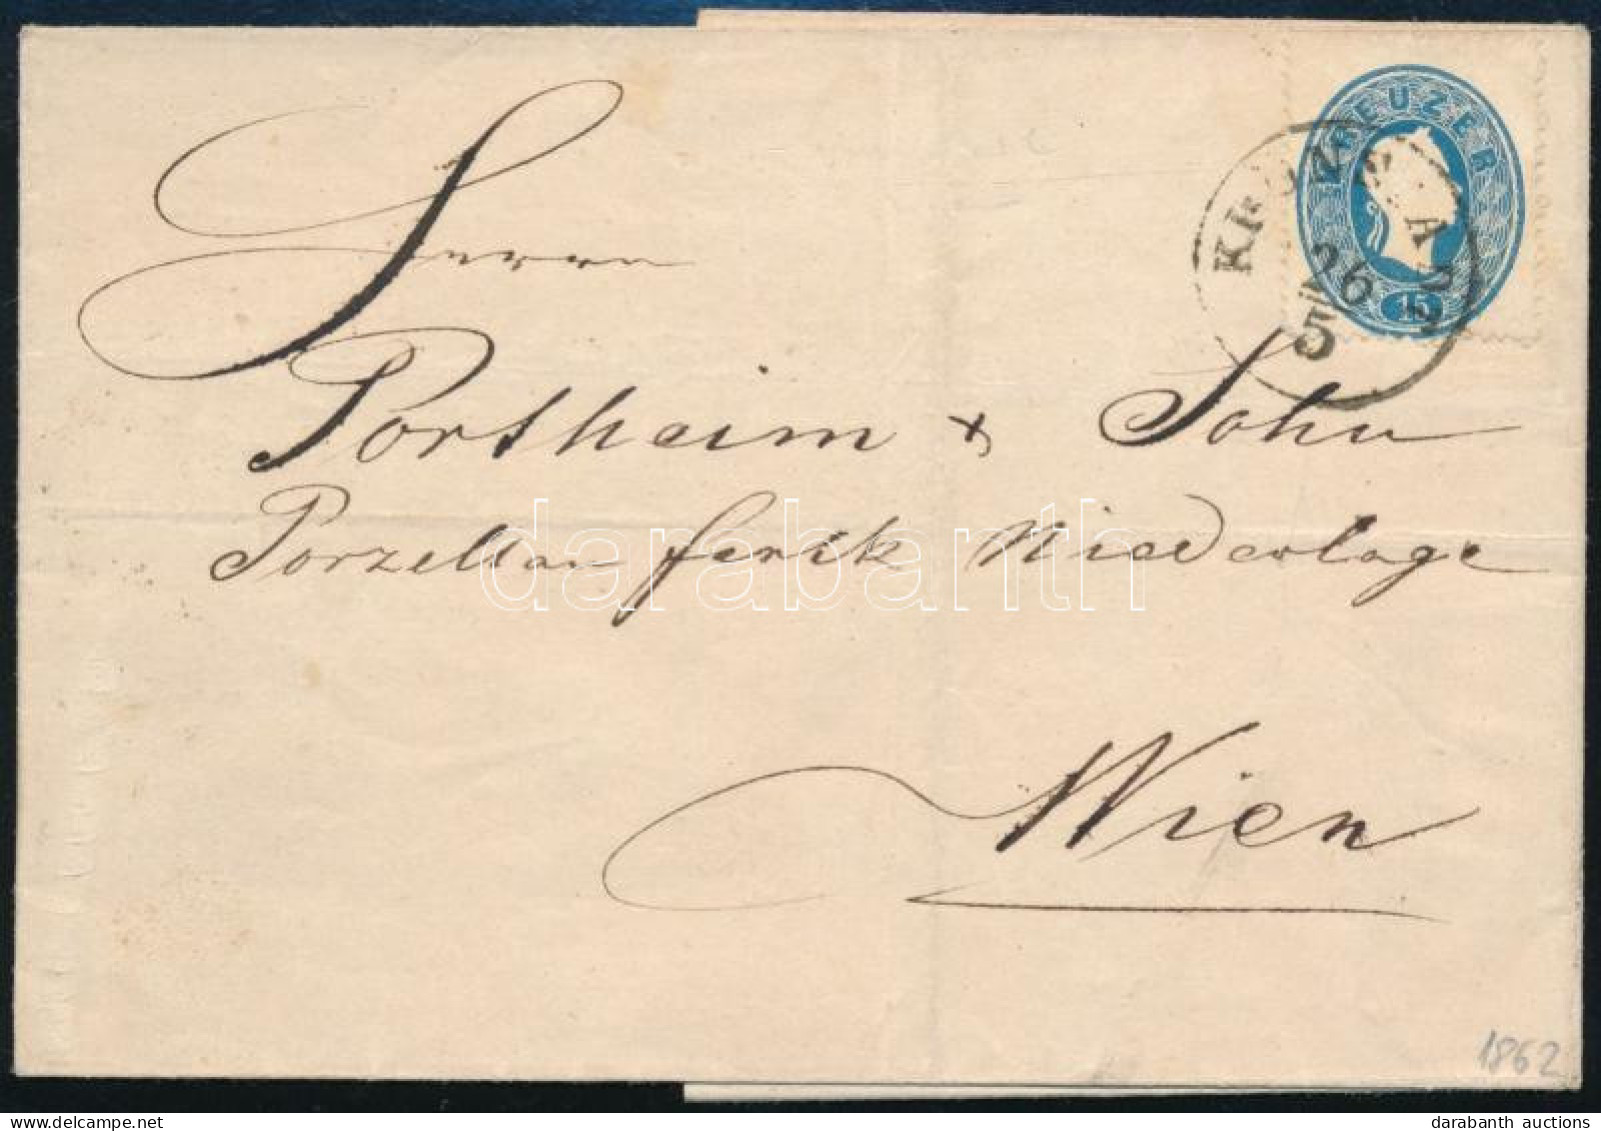 KREUZER
15
26
5
Herrn
Portheim & Sohn
Porzellan ferik Niederlage
Wien
1862
darabanth
darabanth auctions